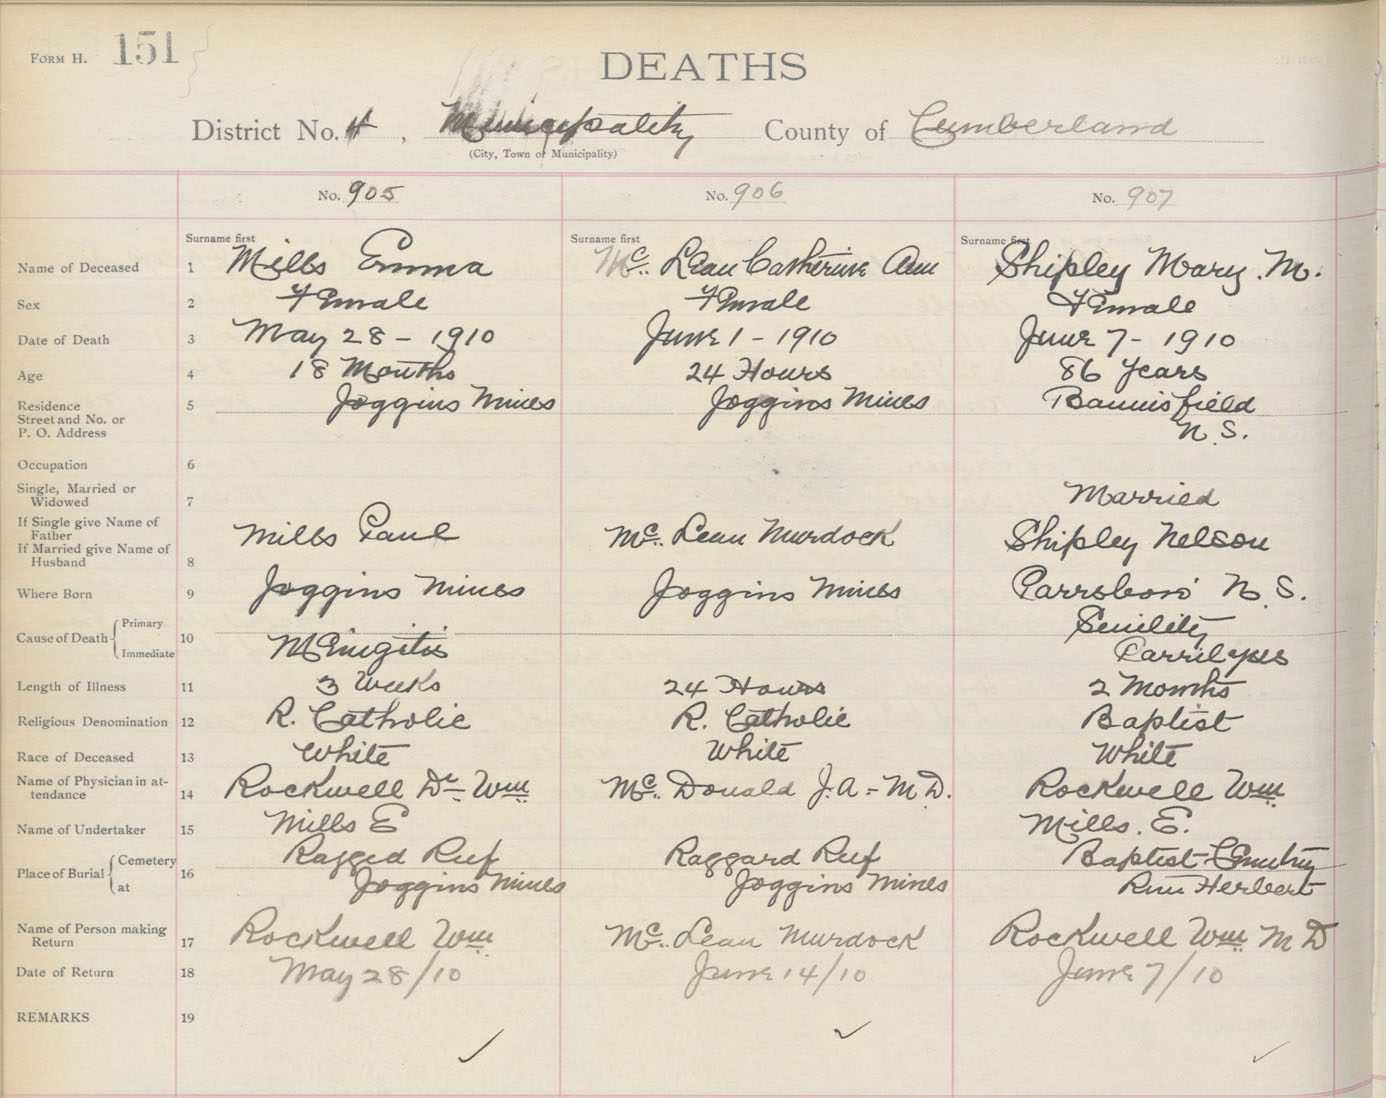 FORM H. 151
DEATHS
District No. 4, Municipality County of Cumberland
(City, Town or Municipality)
No. 905 No. 906 No. 907
Surname first Surname first Surname first
Name of Deceased 1 Mills Emma Mc. Lean Catherine Ann Shipley Mary. M.
Sex 2 Female Female Female
Date of Death 3 May 28 - 1910 June 1 - 1910 June 7 - 1910
Age 4 18 Months 24 Hours 86 Years
Residence 5 Joggins Mines Joggins Mines Bannisfield
Street and No. or
P. O. Address N.S.
Occupation 6
Single, Married or
Widowed 7 Married
If Single give Name of
Father Mills Paul Mc. Lean Murdock Shipley Nelson
If Married give Name of
Husband 8
Where Born 9 Joggins Mines Joggins Mines Parrsboro' N.S.
Cause of Death Primary 10 Senility
Immediate Meingitis Parrilypes
Length of Illness 11 3 Weeks 24 Hours 2 Months
Religious Denomination 12 R. Catholic R. Catholic Baptist
Race of Deceased 13 White White White
Name of Physician in at-
tendance 14 Rockwell Dr Wm Mc. Donald J.A - M.D. Rockwell Wm
Name of Undertaker 15 Mills E Mills. E.
Place of Burial Cemetery 16 Ragged Reef Raggard Reef Baptist Cemetry
at Joggins Mines Joggins Mines River Herbert
Name of Person making
Return 17 Rockwell Wm Mc. Lean Murdock Rockwell Wm M D
Date of Return 18 May 28/10 June 14/10 June 7/10
REMARKS 19